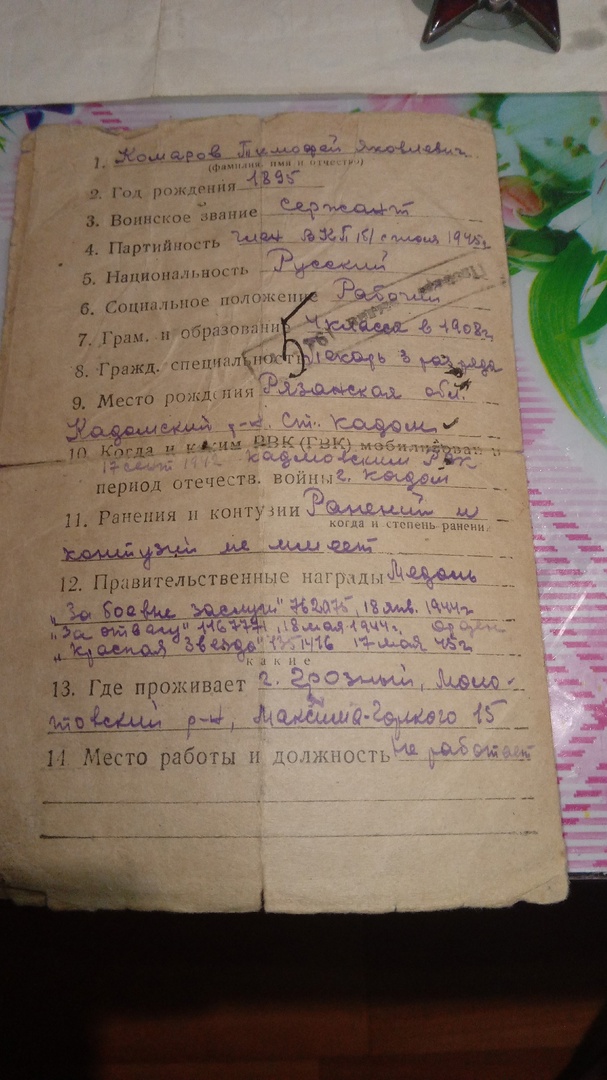 1. Комаров Тимофей Яковлевич
(фамилия, имя и отчество)
2. Год рождения 1895
3. Воинское звание сержант
4. Партийность член ВКП(б) с июля 1945г
5. Национальность Русский
6. Социальное положение Рабочий
7. Грам. и образование 4 класса в 1908г
5
8. Гражд. специальность Пекарь 3 разряда
9. Место рождения Рязанская обл.
Кадомский р-н. ст. Кадом
10. Когда и каким РВК (ГВК) мобилизован в
17 сент Кадомовским РВК
период отечеств. войны г. Кадом
11. Ранения и контузии Ранений и
когда и степень ранени.
контузий не имеет
12. Правительственные награды Медаль
„За боевые заслуги" 762075, 18 янв. 1944г
„За отвагу" 1167771, 18 мая 1944г, орден
„Красная Звезда" 1351416 17 мая 45г
какие
13. Где проживает г. Грозный, Моло-
товский р-н, Максима-Горкого 15
14 Место работы и должность не работает